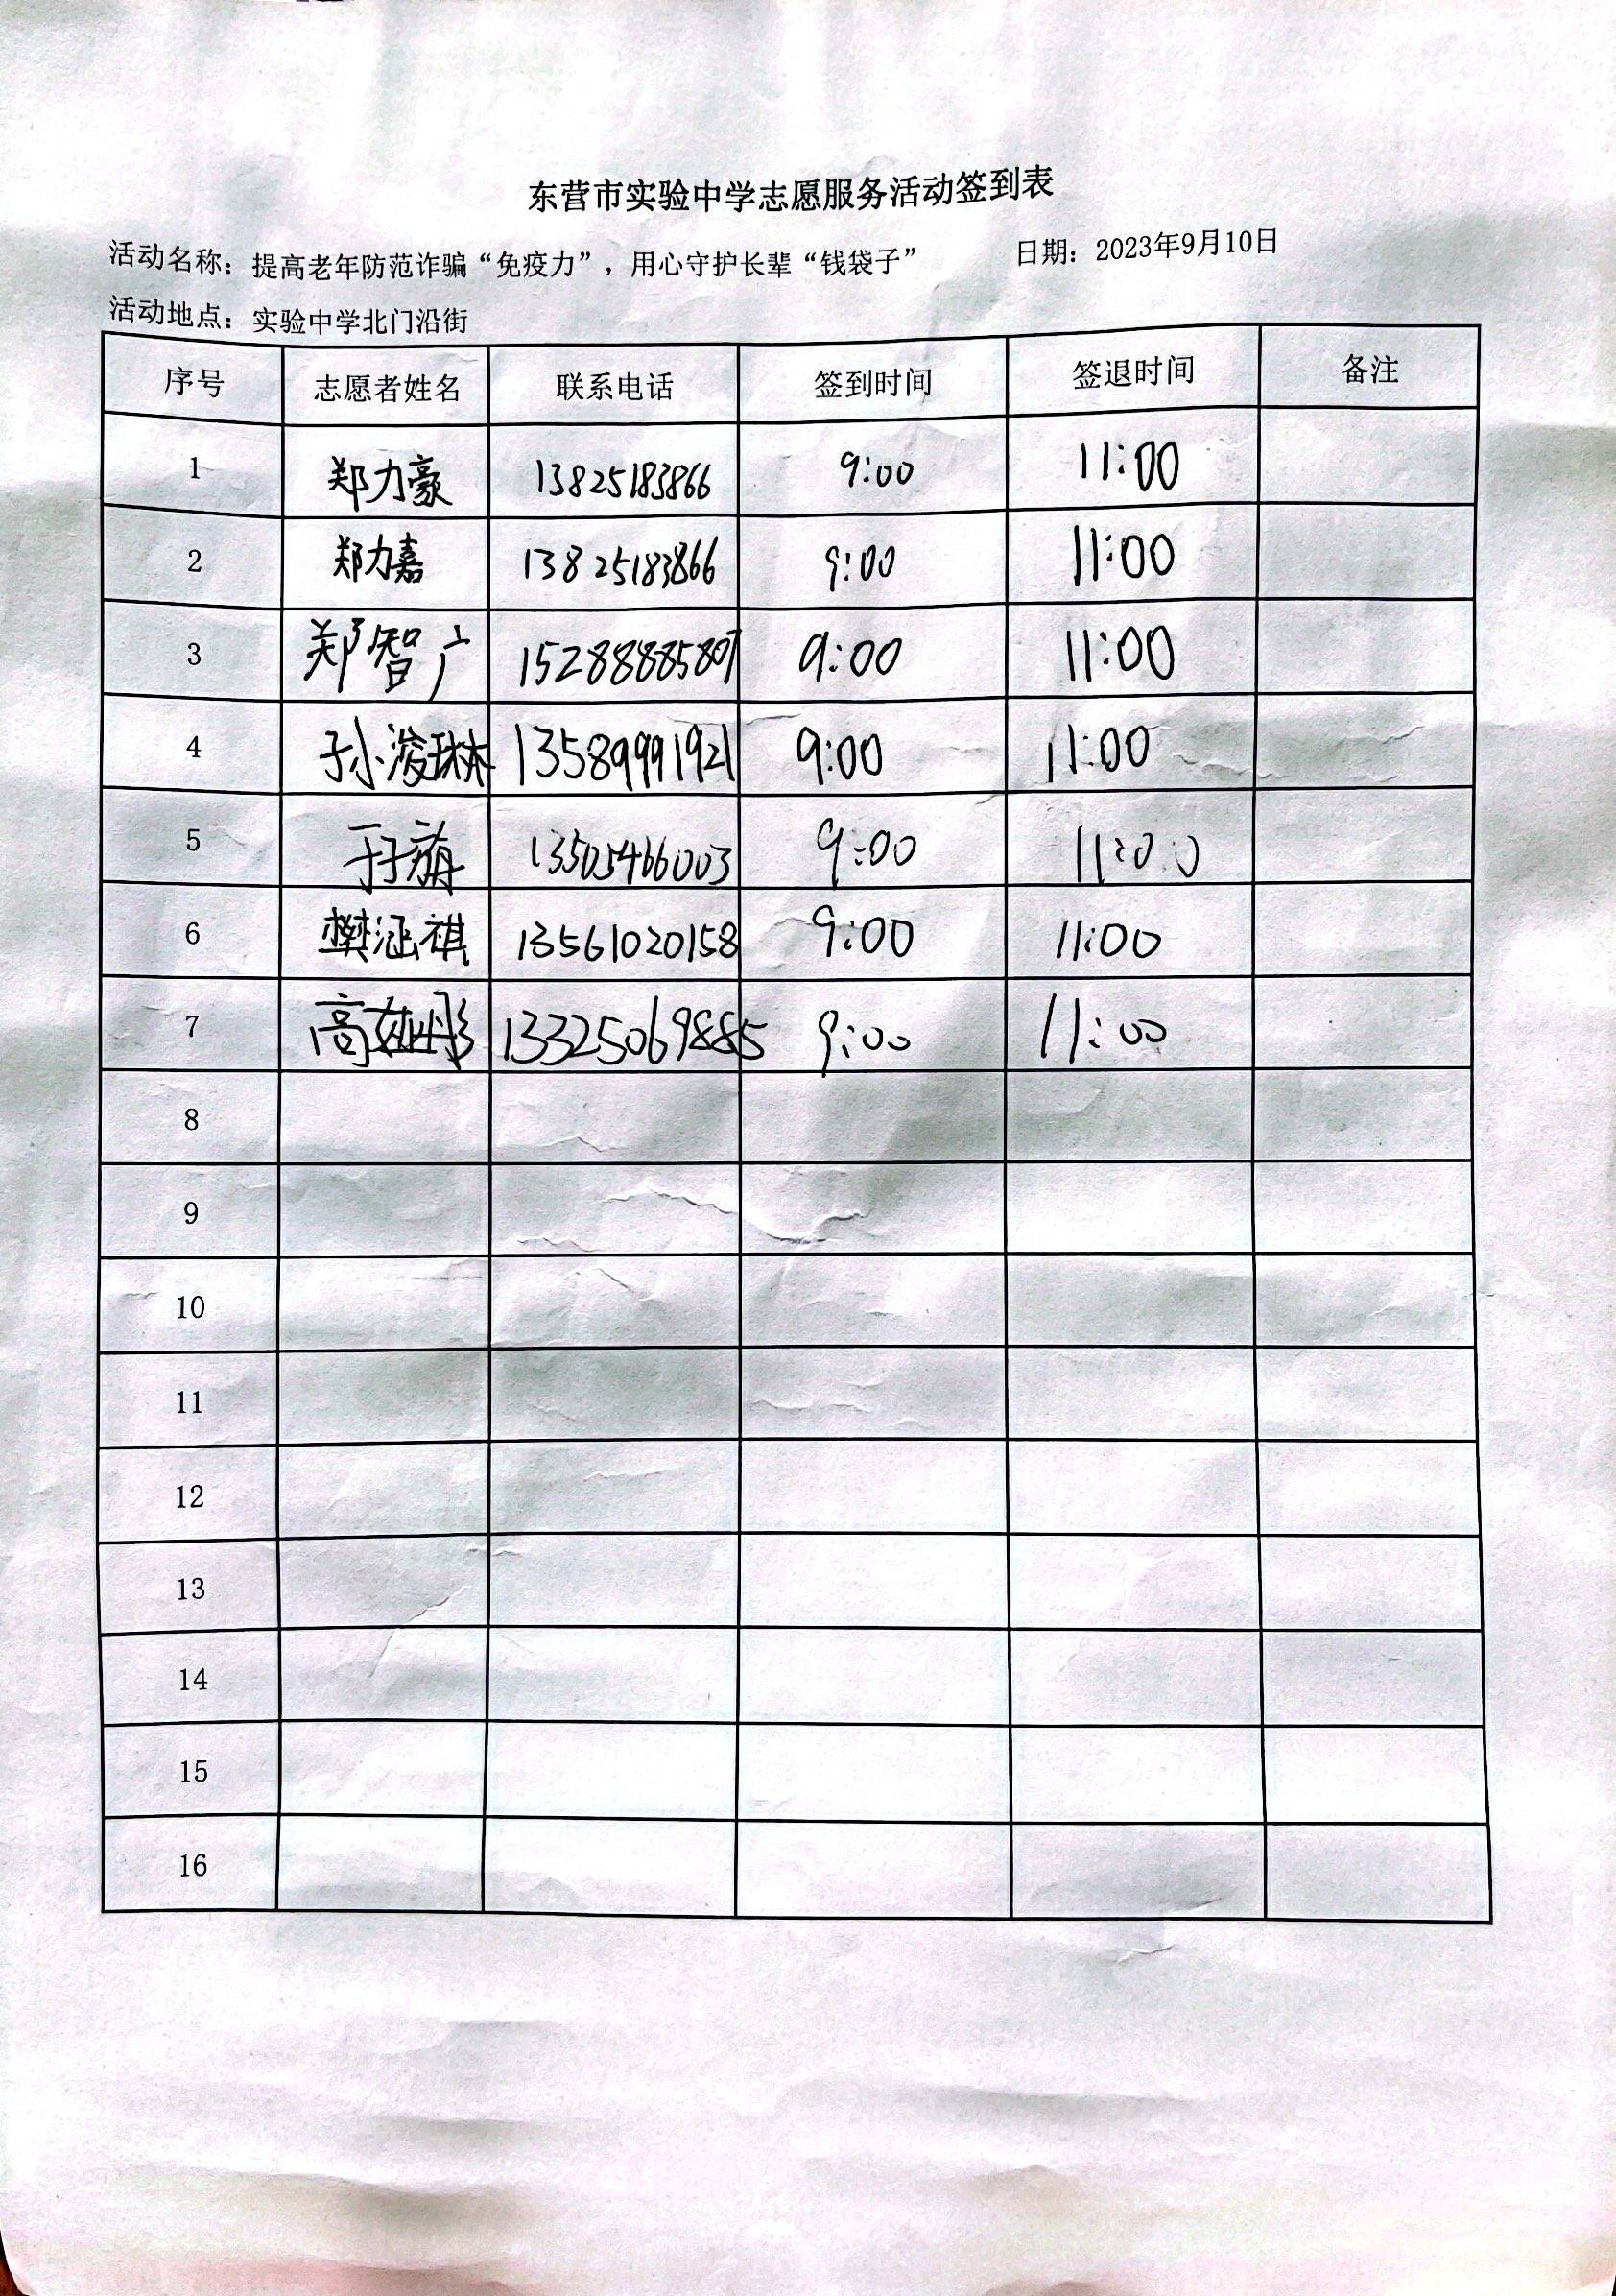 东营市实验中学志愿服务活动签到表
活动名称：提高老年防范诈骗“免疫力”，用心守护长辈“钱袋子” 日期：2023年9月10日
活动地点：实验中学北门沿街
序号 志愿者姓名 联系电话 签到时间 签退时间 备注
1 郑力豪 13825183866 9:00 11:00
2 郑力嘉 13825183866 9:00 11:00
3 郑智广 15288885807 9:00 11:00
4 孙浚琳 13589991921 9:00 11:00
5 于子 13505466003 9:00 11:00
6 樊涵祺 13561020158 9:00 11:00
7 高娅彤 13325069885 9:00 11:00
8
9
10
11
12
13
14
15
16